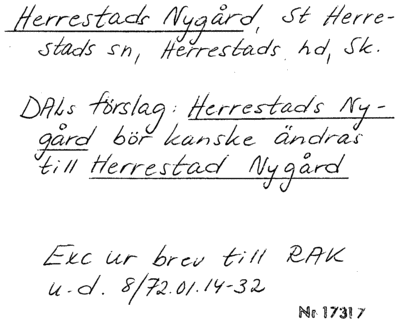 Herrestads Nygård, St Herre-
stads sn, Herrestads hd, Sk.
DALs förslag: Herrestads Ny-
gård bör kanske ändras
till Herrestad Nygård
Exc ur brev till RAK
u.d. 8/72.01.14-32
Nr 17317